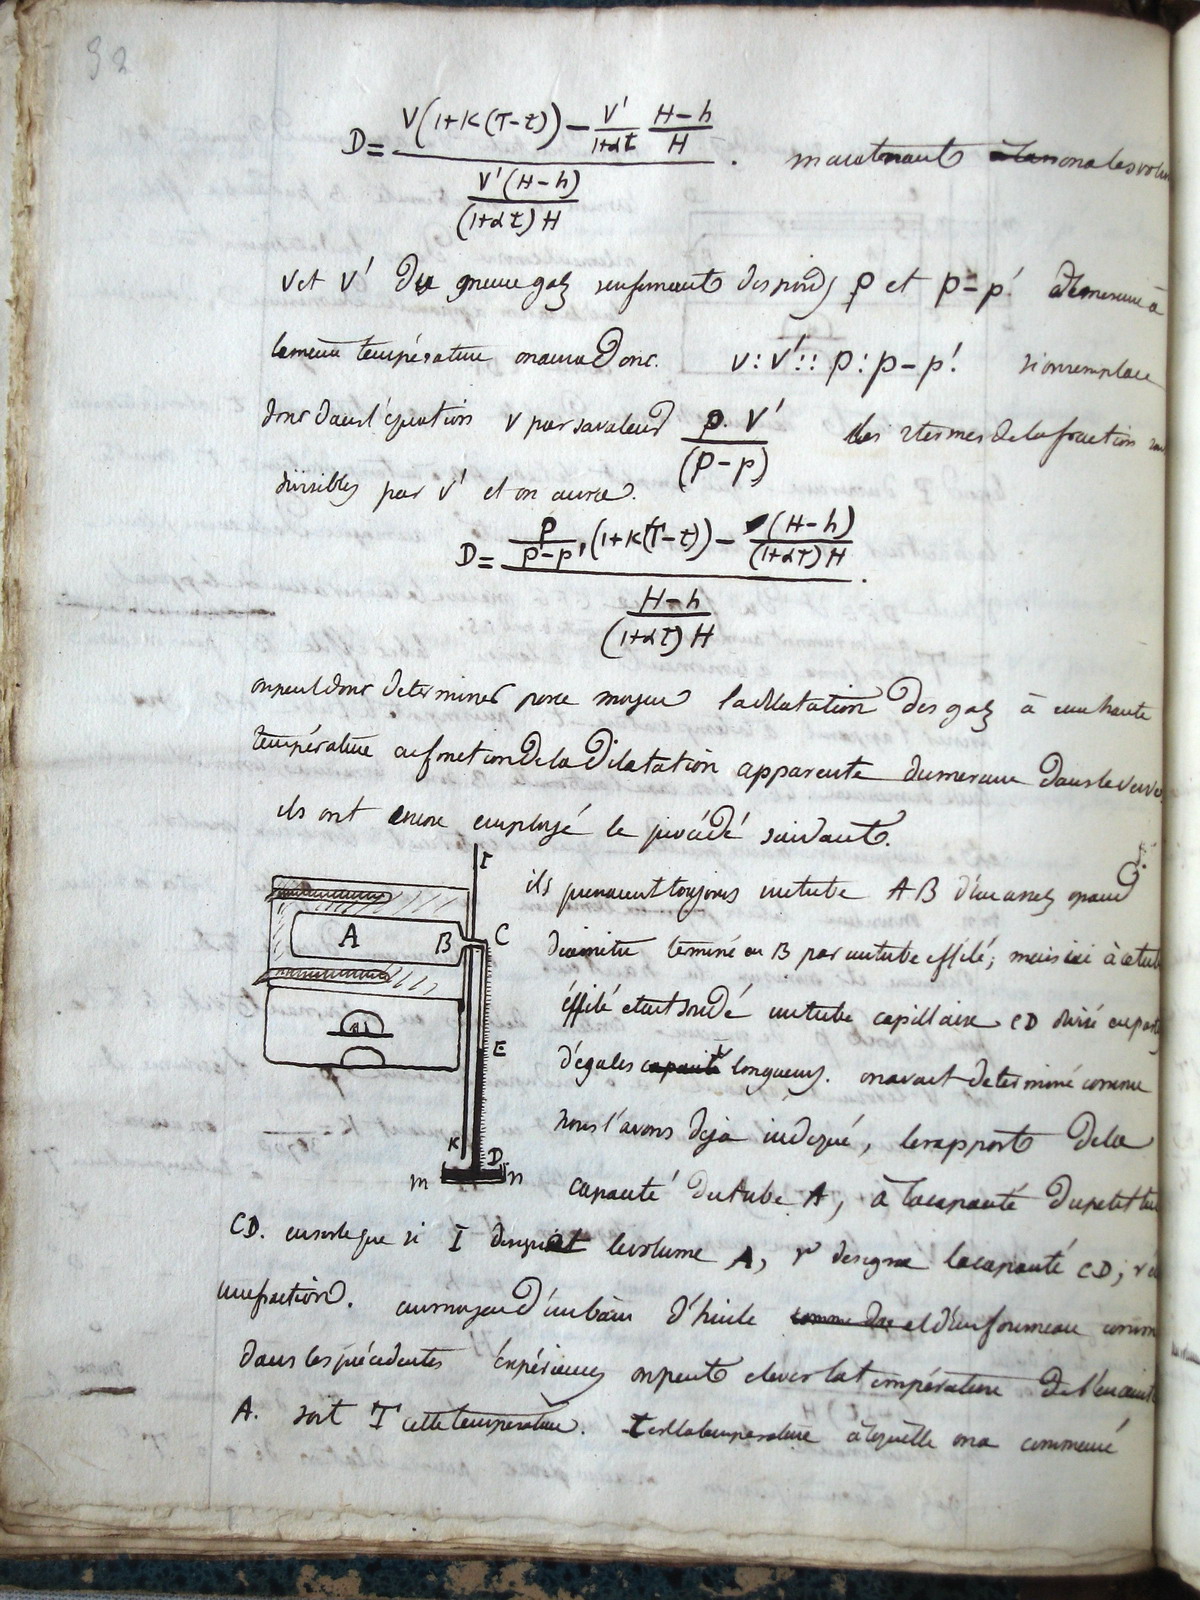 32
D = \frac{V(1+K(T-t)) - \frac{V'}{1+\alpha t} \frac{H-h}{H}}{\frac{V'(H-h)}{(1+\alpha t)H}}. maintenant on a les vol
V et V' du gaz renfermant des poids p et p-p'. de mercure à
la meme température on aura Donc. V : V' :: p : p-p'. si on remplace
donc dans l'équation V par sa valeur \frac{p. V'}{(p-p)} les 2 termes de la fraction
divisibles par V' et on aura.
D = \frac{\frac{p}{p-p'}.(1+K(T-t)) - \frac{(H-h)}{(1+\alpha T)H}}{\frac{H-h}{(1+\alpha t)H}}.
on peut donc determiner par ce moyen la dilatation des gaz à une haute
température en fonction de la Dilatation apparente du mercure dans le verre
ils ont encore employé le procédé suivant.
I
ils prenaient toujours un tube AB d'un assez grand
A B C
diamètre terminé en B par un tube effilé; mais ici à ce tub
éffilé etait soudé un tube capillaire CD divisé en part
E
d'égales capacité longueurs. on avait determiné comme
nous l'avons deja indiqué, le rapport de la
K D
m n
capacité du tube A, à la capacité du petit tu
CD. en sorte que si I designait le volume A, r designe la capacité CD; r
une fraction. au moyen d'un bain d'huile et d'un fourneau comm
dans les précédentes éxpériences on peut elever la température de l'enceinte
A. soit T cette température. t est la temperature à laquelle on a commencé